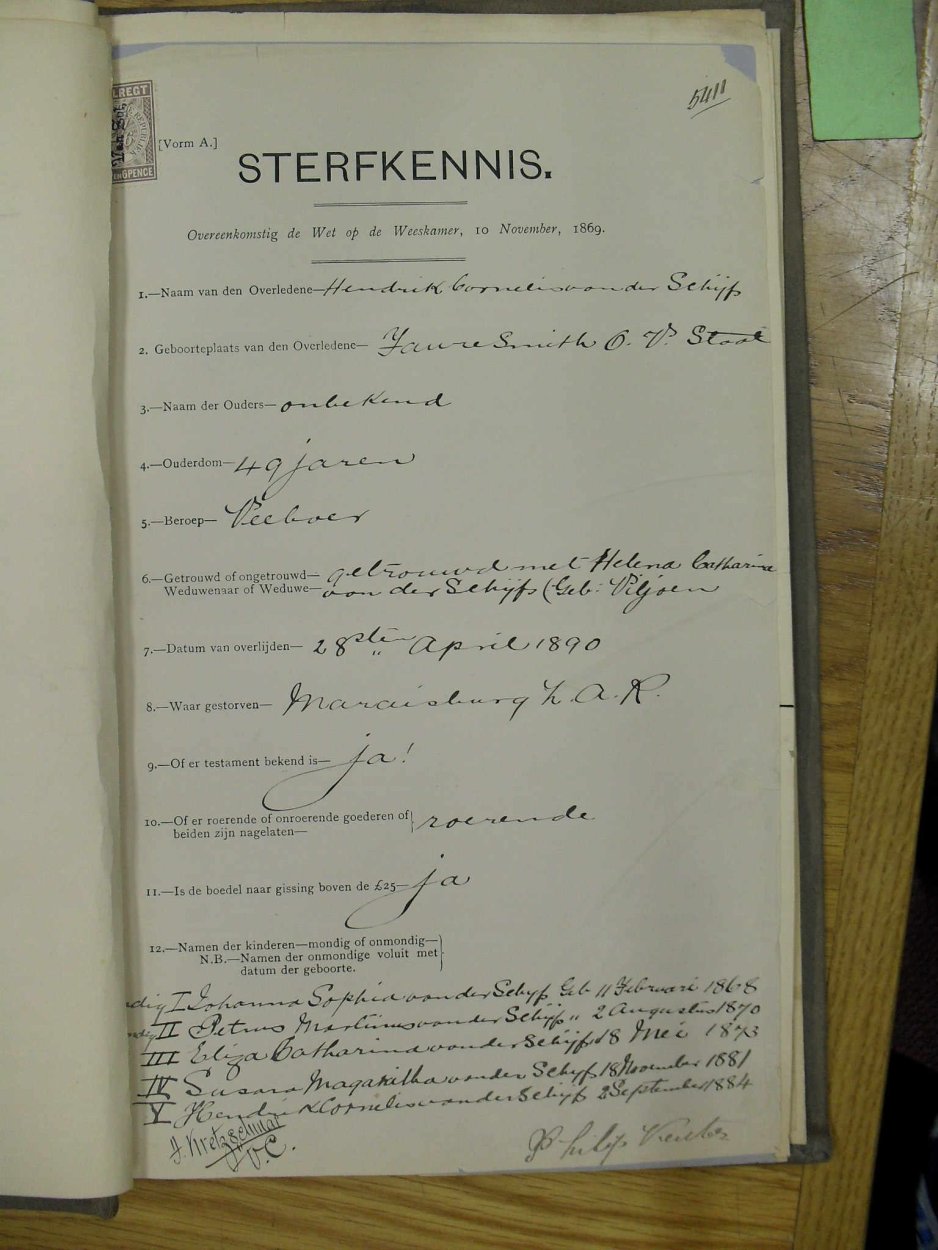 ZEGELREGT
[Vorm A.]
5411
STERFKENNIS.
Overeenkomstig de Wet op de Weeskamer, 10 November, 1869.
1.—Naam van den Overledene—Hendrik Cornelis van der Schijf
2. Geboorteplaats van den Overledene— Fauresmith O. V. Staat
3.—Naam der Ouders— onbekend
4.—Ouderdom— 49 jaren
5.—Beroep— Veeboer
6.—Getrouwd of ongetrouwd— getrouwd met Helena Catharina
Weduwenaar of Weduwe— van der Schijf (Geb: Viljoen
7.—Datum van overlijden— 28sten April 1890
8.—Waar gestorven— Maraisburg Z. A. R.
9.—Of er testament bekend is— ja!
10.—Of er roerende of onroerende goederen of
beiden zijn nagelaten— } roerende
11.—Is de boedel naar gissing boven de £25— ja
12.—Namen der kinderen—mondig of onmondig—
N.B.—Namen der onmondige voluit met
datum der geboorte. }
I Johanna Sophia van der Schyf Geb 11 Februari 1868
II Petrus Martinus van der Schijf " 2 Augustus 1870
III Eliza Catharina van der Schijf 18 Mei 1873
IV Susara Magaritha van der Schyf 18 November 1881
V Hendrik Cornelis van der Schijf 2 September 1884
J. Kretzschmar
V.C.
Philip